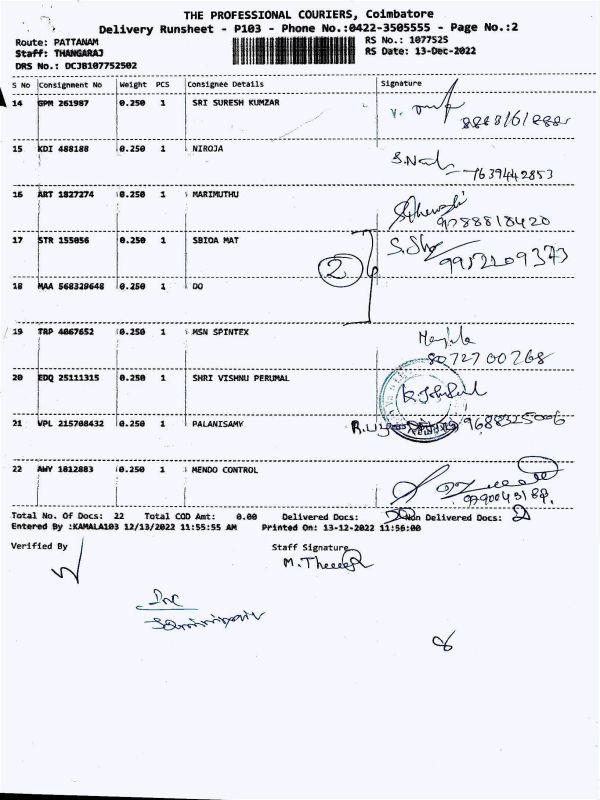 THE PROFESSIONAL COURIERS, Coimbatore
Delivery Runsheet - P103 - Phone No.:0422-3505555 - Page No.:2
Route: PATTANAM RS No.: 1077525
Staff: THANGARAJ RS Date: 13-Dec-2022
DRS No.: DCJB107752502
S No Consignment No Weight PCS Consignee Details Signature
14 GPM 261987 0.250 1 SRI SURESH KUMZAR
15 KDI 488188 0.250 1 NIROJA
7639442853
16 ART 1827274 0.250 1 MARIMUTHU
9788818420
17 STR 155056 0.250 1 SBIOA MAT
2
18 MAA 568329648 0.250 1 DO
19 TRP 4067652 0.250 1 MSN SPINTEX
8072700268
20 EDQ 25111315 0.250 1 SHRI VISHNU PERUMAL
21 VPL 215708432 0.250 1 PALANISAMY 9688325006
22 AWY 1812883 0.250 1 MENDO CONTROL
Total No. Of Docs: 22 Total COD Amt: 0.00 Delivered Docs: 20 Non Delivered Docs: 2
Entered By :KAMALA103 12/13/2022 11:55:55 AM Printed On: 13-12-2022 11:56:00
Verified By Staff Signature
8